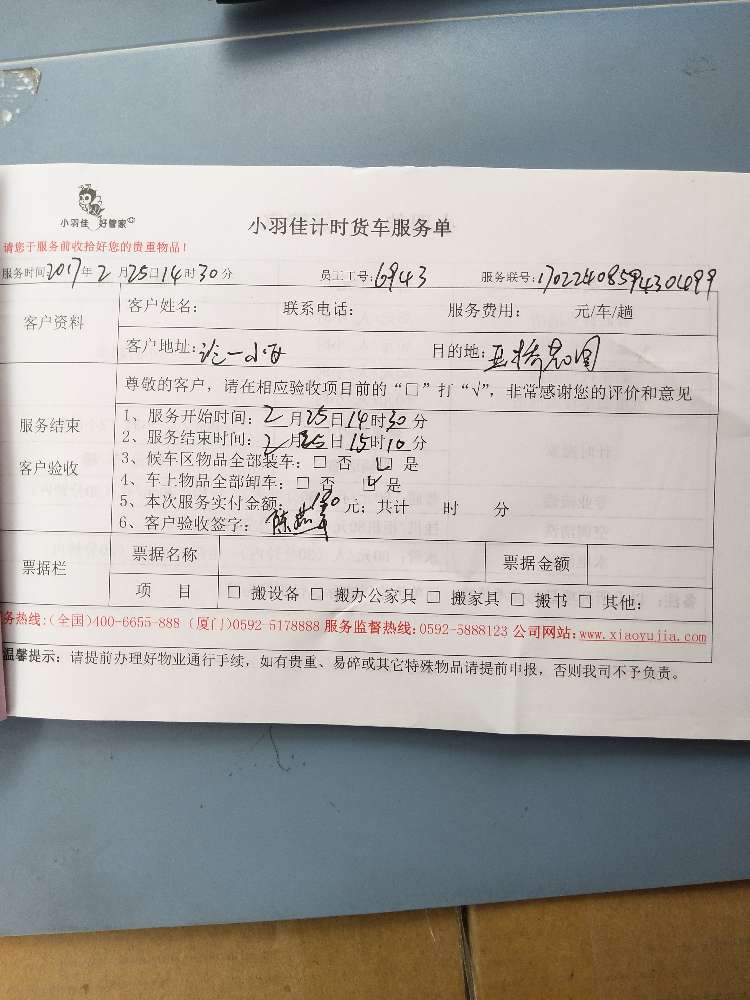 小羽佳 好管家
小羽佳计时货车服务单
请您于服务前收拾好您的贵重物品！
服务时间2017年2月25日14时30分 员工工号:6943 服务联号:
客户资料 客户姓名: 联系电话: 服务费用: 元/车/趟
客户地址: 目的地:
尊敬的客户，请在相应验收项目前的“□”打“√”，非常感谢您的评价和意见
服务结束
客户验收
1、服务开始时间：2月25日14时30分
2、服务结束时间：2月25日15时10分
3、候车区物品全部装车：□ 否 ☑ 是
4、车上物品全部卸车：□ 否 ☑ 是
5、本次服务实付金额： 元；共计 时 分
6、客户验收签字：
票据栏 票据名称 票据金额
项 目 □ 搬设备 □ 搬办公家具 □ 搬家具 □ 搬书 □ 其他:
务热线:(全国)400-6655-888 (厦门)0592-5178888 服务监督热线:0592-5888123 公司网站:www.xiaoyujia.com
温馨提示：请提前办理好物业通行手续，如有贵重、易碎或其它特殊物品请提前申报，否则我司不予负责。